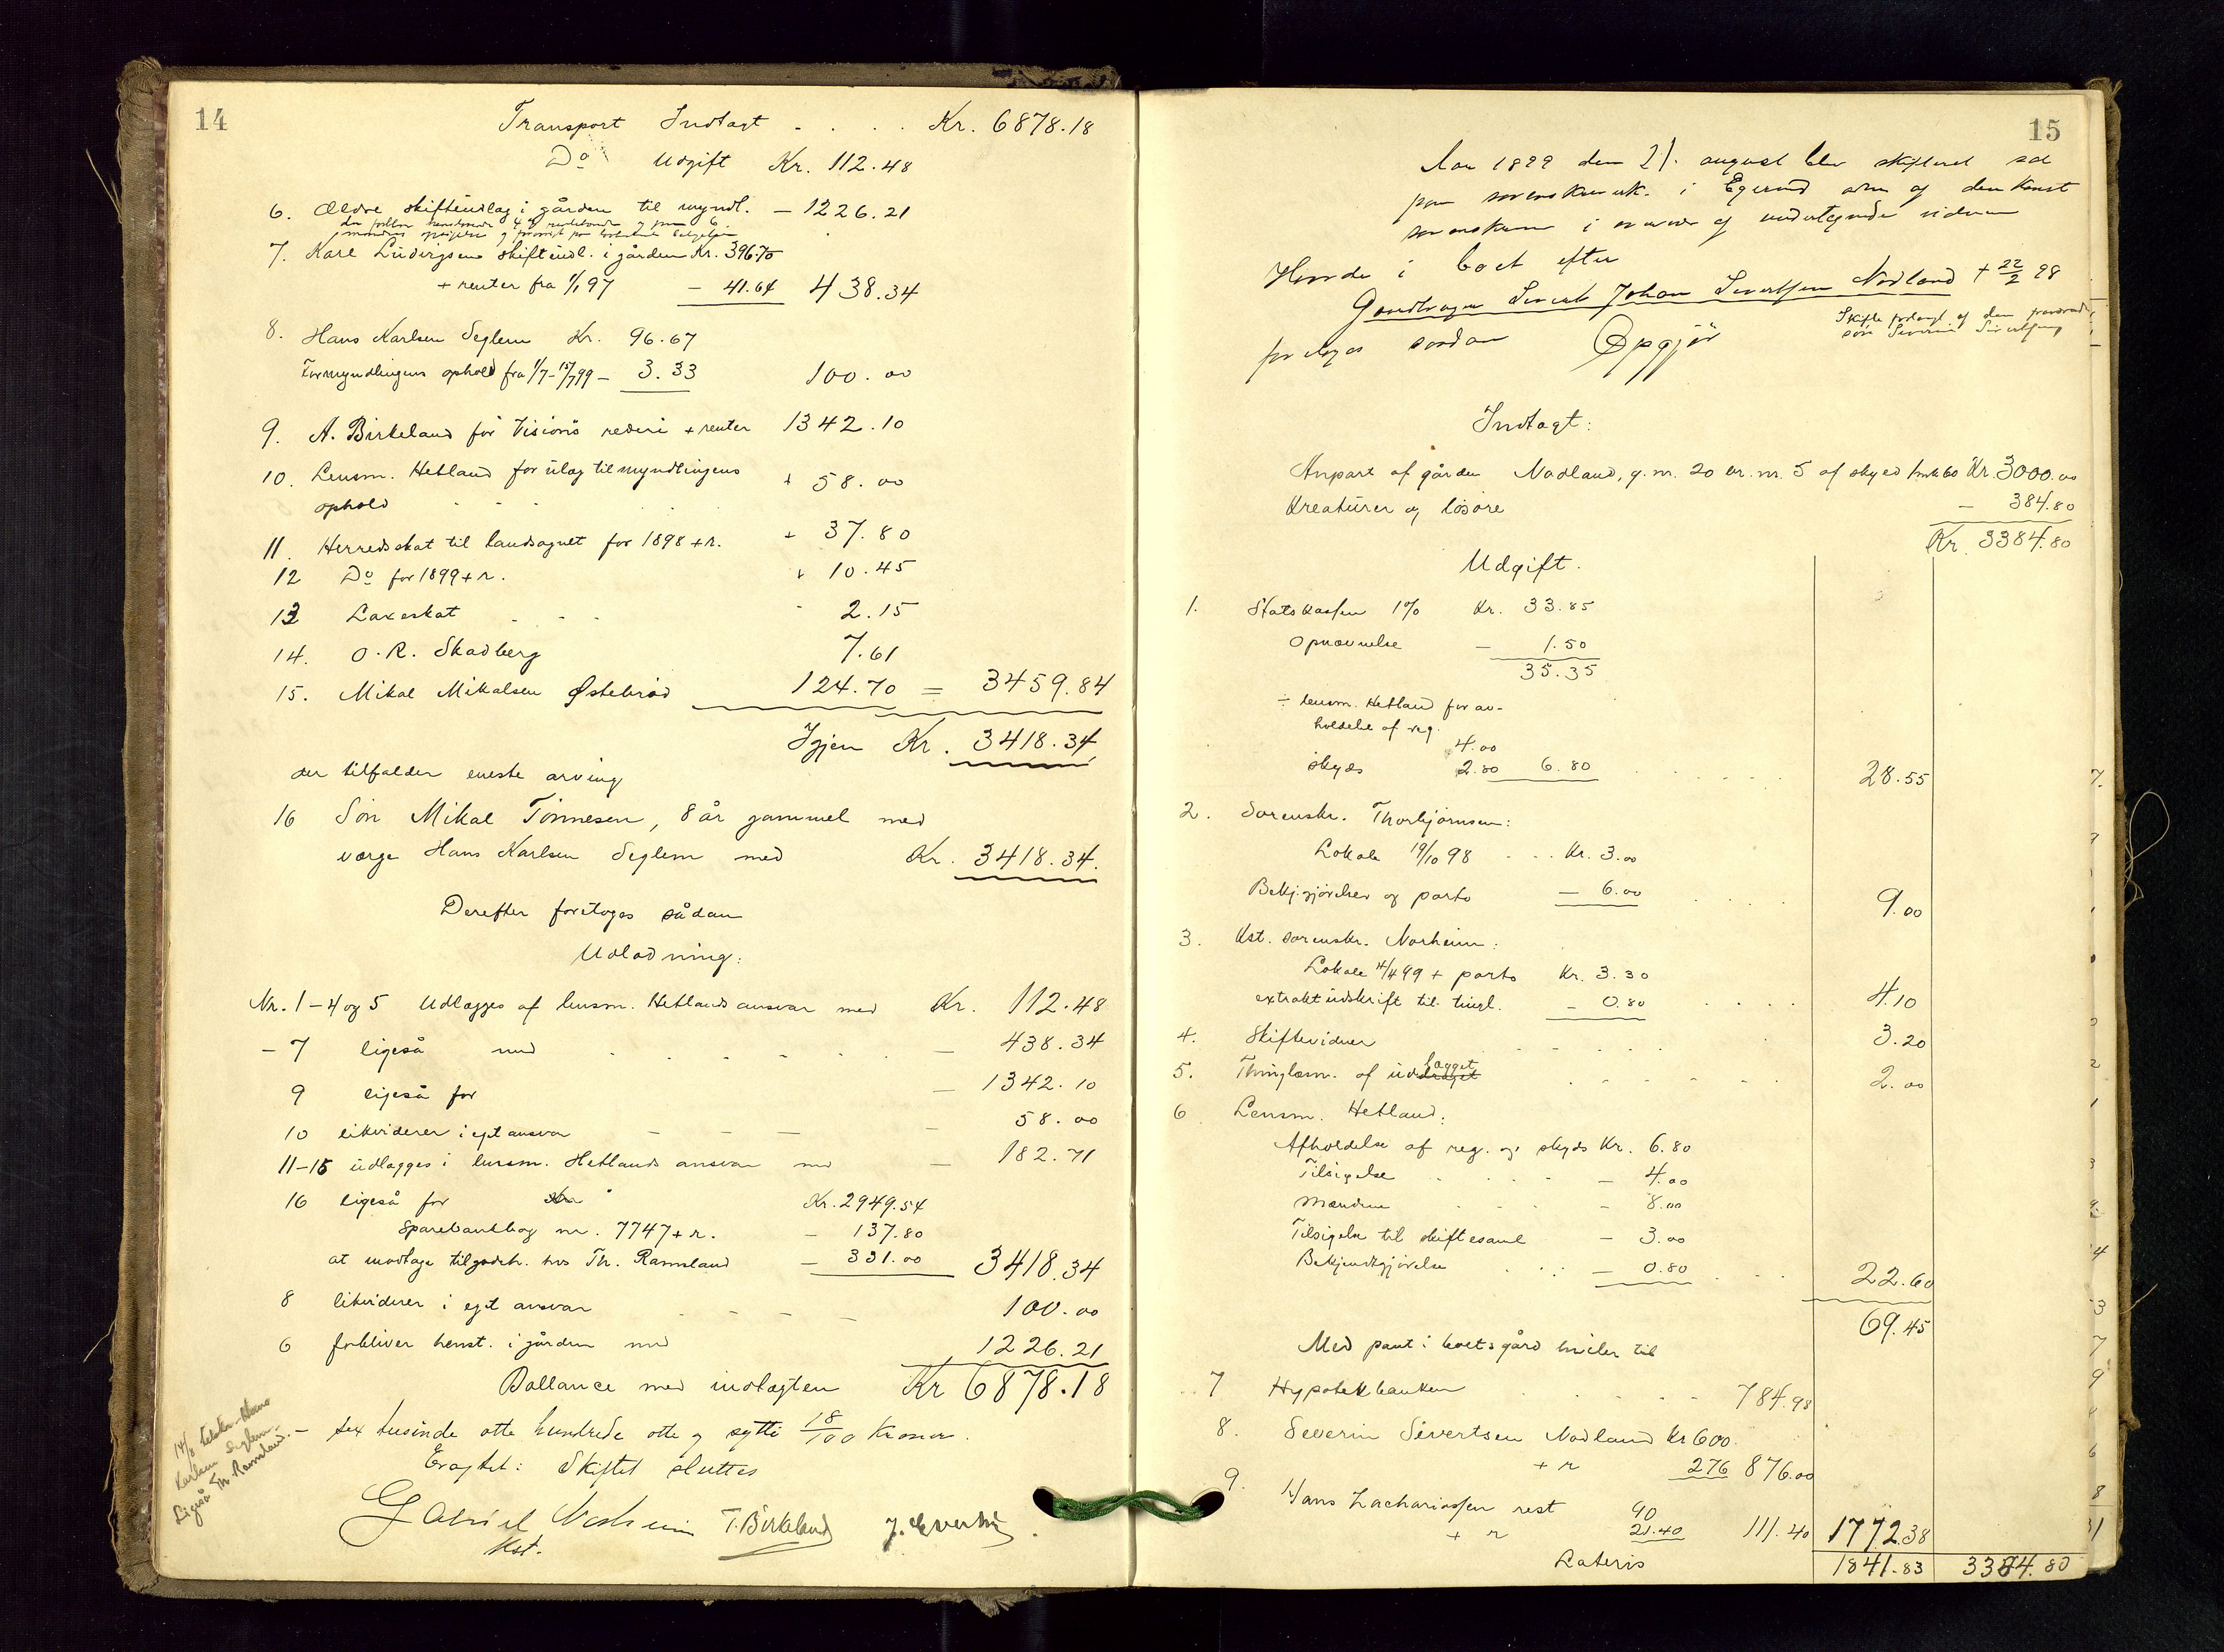 14
Transport Indtagt . . . . Kr. 6878.18
Do Udgift Kr. 112.48
6. Ældre skifteudlæg i gården til myndl. — 1226.21
7. Karl Ludvigsens skifteudl. i gården Kr. 396.70
+ renter fra 1/1 97 — 41.64 438.34
8. Hans Karlsen Seglem Kr. 96.67
For myndlingens ophold fra 1/7–15/7 99 — 3.33 100.00
9. A. Birkeland for Visions rederi + renter 1342.10
10. Lensm. Hetland for udlæg til myndlingens
ophold 58.00
11. Herredsskat til Landsognet for 1898 + r. 37.80
12 Do for 1899 + r. 10.45
13 Laxeskat . . . 2.15
14. O. R. Skadberg 7.61
15. Mikal Mikalsen Østebrød 124.70 = 3459.84
Igjen Kr. 3418.34
der tilfalder eneste arving
16 Søn Mikal Tønnesen, 8 år gammel med
værge Hans Karlsen Seglem med Kr. 3418.34.
Derefter foretoges sådan
Udlodning:
Nr. 1–4 og 5 Udlægges af lensm. Hetlands ansvar med Kr. 112.48
– 7 ligeså med — 438.34
9 ligeså for — 1342.10
10 likviderer i eget ansvar — 58.00
11–15 udlægges i lensm. Hetlands ansvar med — 182.71
16 ligeså for Kr. 2949.54
Sparebankbog nr. 7747 + r. — 137.80
at modtage tilgodeh. hos Th. Ramsland — 331.00 3418.34
8 likviderer i eget ansvar 100.00
6 forbliver henst. i gården med 1226.21
Ballance med indtægten Kr 6878.18
– sex tusinde otte hundrede otte og sytti 18/100 Kroner.
Eragtet: Skiftet sluttes
Gabriel Norheim T. Birkeland J. Sverdrup
Kst.
14/8 Hans
Karlsen Seglem.
Ligeså Th. Ramsland.
15
Aar 1899 den 21. august blev skifteret sat
paa sorenskriverk. i Egersund adm af den konst
sorenskriver i nærvær af undertegnede vidner
Hvorda i boet efter
Gaardbruger Sivert Johan Sivertsen Nodland † 22/2 98
Skifte forlangt af den
søn Severin Sivertsen
foretoges saadan Opgjør
Indtagt:
Anpart af gården Nodland, g.nr. 20 br.nr. 5 af skyld 1 mk 60 Kr. 3000.00
Kreaturer og løsøre — 384.80
Kr. 3384.80
Udgift.
1. Statskassen 1% Kr. 33.85
Opnævnelse — 1.50
35.35
÷ lensm. Hetland for av-
holdelse af reg.
4.00
skyds 2.80 6.80 . . . . 28.55
2. Sorenskr. Thorbjørnsen:
Lokale 19/10 98 . . . Kr. 3.00
Bekj.gjørelser og porto — 6.00 . . . . 9.00
3. Kst. sorenskr. Norheim:
Lokale 4/4 99 + porto Kr. 3.30
extraktudskrift til tingl. — 0.80 . . . . 4.10
4. Skiftevidner . . . . . 3.20
5. Thinglæsn. af udlægget . . . . . 2.00
6 Lensm. Hetland:
Afholdelse af reg. og skyds Kr. 6.80
Tilsigelse . . . . — 4.00
Mændene . . . — 8.00
Tilsigelse til skiftesaml — 3.00
Bekjendtgjørelse . . : — 0.80 . . . 22.60
69.45
Med pant i boets gård hviler til
7 Hypotekbanken . . . . . 784.98
8. Severin Sivertsen Nodland Kr 600.
+ r 276 876.00
9. Hans Zachariassen rest 90
+ r 21.40 111.40 1772.38
Lateris 1841.83 3384.80